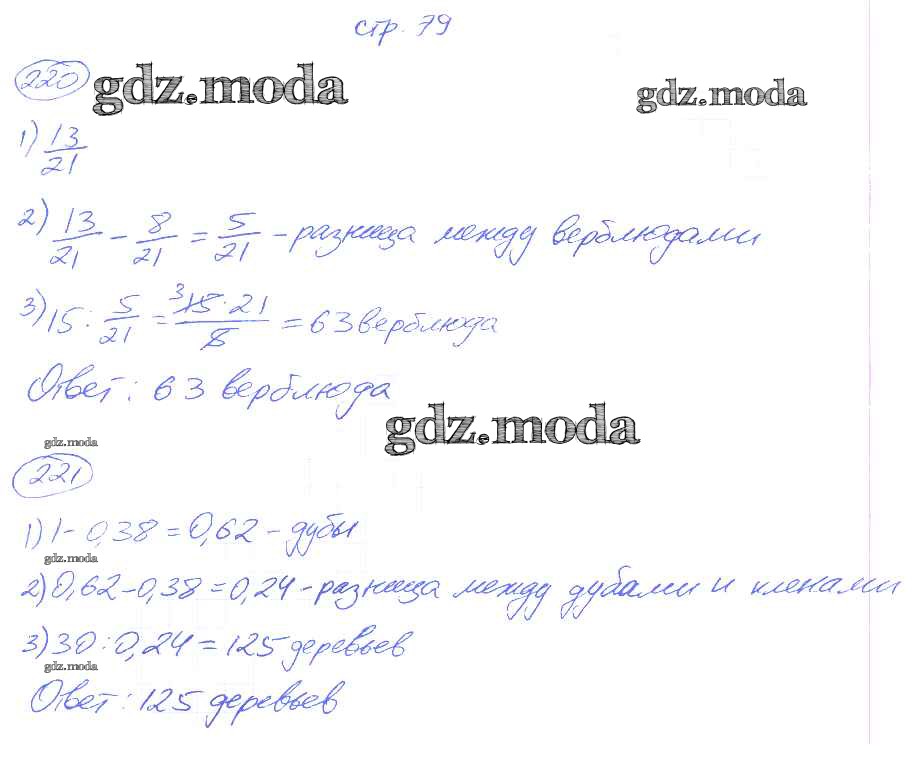 стр. 79
220 gdz.moda gdz.moda
1) 13/21
2) 13/21 - 8/21 = 5/21 - разница между верблюдами
3) 15 : 5/21 = 3 15 · 21 / 5 = 63 верблюда
Ответ: 63 верблюда
gdz.moda
gdz.moda
221
1) 1 - 0,38 = 0,62 - дубы
gdz.moda
2) 0,62 - 0,38 = 0,24 - разница между дубами и кленами
3) 30 : 0,24 = 125 деревьев
gdz.moda
Ответ: 125 деревьев